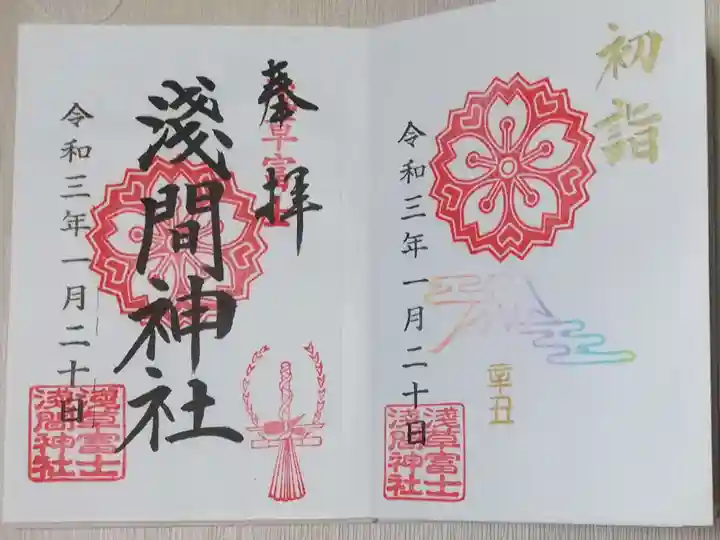 初詣
令和三年一月二十日
辛丑
淺草富士
淺間神社
奉拝
淺草富士
淺間神社
令和三年一月二十日
淺草富士
淺間神社